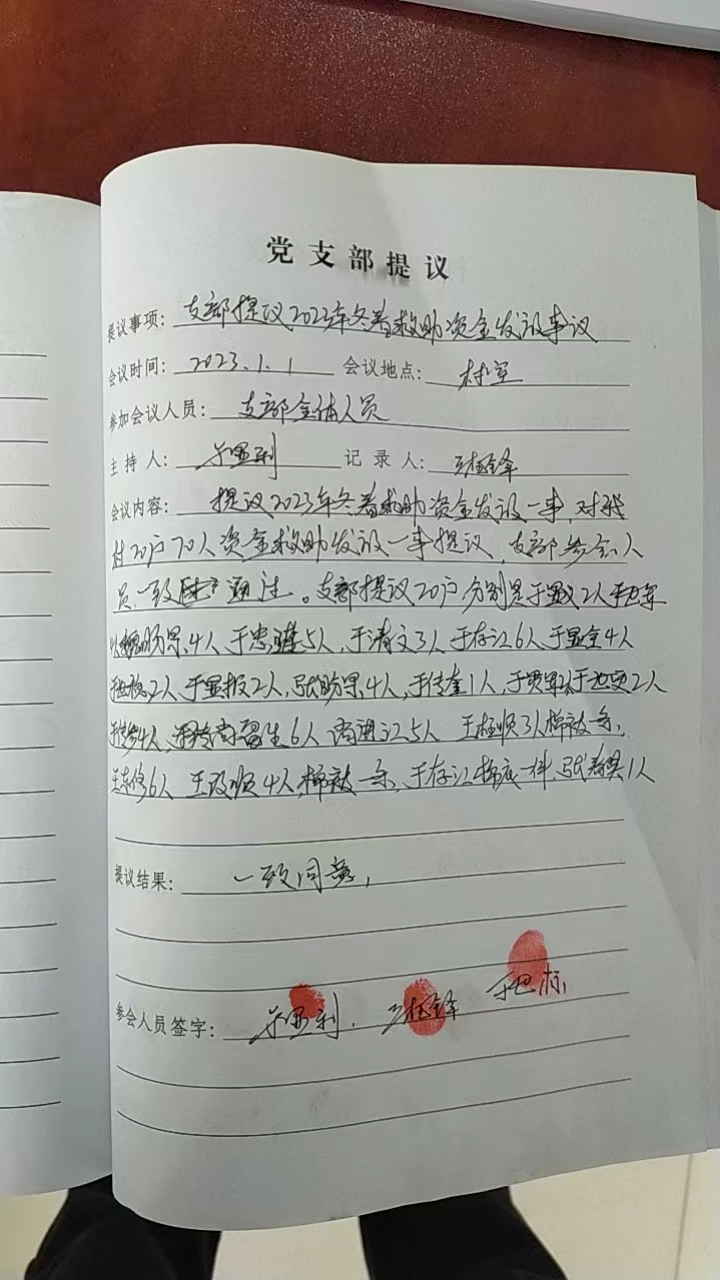 党支部提议
提议事项：支部提议2023年冬春救助资金发放事议
会议时间：2023.1.1 会议地点：村室
参加会议人员：支部全体人员
主持人：于显利 记录人：王极锋
会议内容：提议2023年冬春救助资金发放一事，对我
村20户70人资金救助发放一事提议，支部参会人
员一致通过。支部提议20户分别是于显义2人
4人于忠 5人，于清文3人于存江6人于显全4人
2人于显报2人，张盼果4人，于传奎1人，2人
4人，留生6人 尚进江5人 王极顺3人棉被一条，
6人 王改顺4人，棉被一条，于存江棉衣一件，1人
提议结果：一致同意，
参会人员签字：于显利. 王极锋 于世标